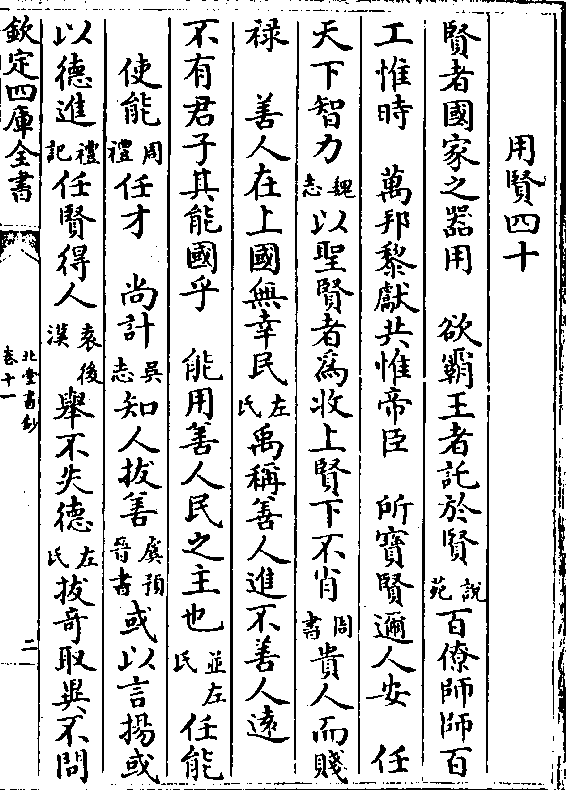 用賢四十
賢者國家之器用　欲霸王者託於賢說苑百僚師師百
工惟時　萬邦黎獻共惟帝臣　所寶賢邇人安　任
天下智力魏志以聖賢者爲收上賢下不肖周書貴人而賤
祿　善人在上國無幸民左氏禹稱善人進不善人遠
不有君子其能國乎　能用善人民之主也並左氏任能
使能周禮任才　尚計吳志知人拔善虞預晉書或以言揚或
以德進禮記任賢得人袁後漢舉不失德左氏拔奇取異不問
欽定四庫全書
北堂書鈔
卷十一
二